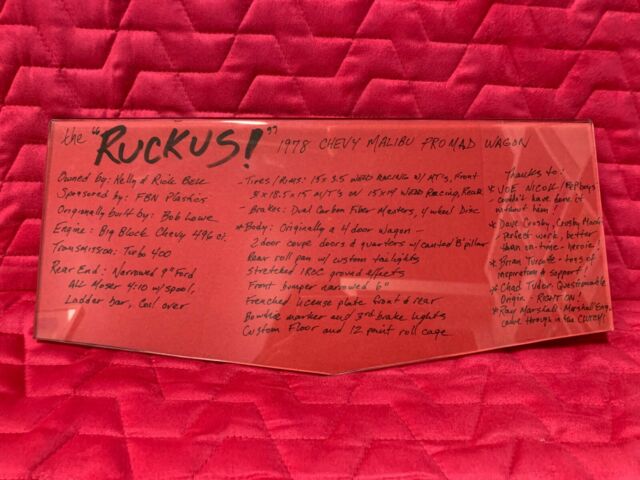 the "RUCKUS!" 1978 CHEVY MALIBU PROMAD WAGON
Owned by: Kelly & Rick Bell
Sponsored by: FBN Plastics
Originally built by: Bob Lowe
Engine: Big Block Chevy 496 ci.
Transmission: Turbo 400
Rear End: Narrowed 9" Ford
ALL Moser 4:10 w/spool,
Ladder bar, Coil over
- Tires/Rims: 15 x 3.5 WELD RACING W/ MT's, Front
18.5 x 15 M/T's on 15x14 WELD Racing, Rear
- Brakes: Dual Carbon Fiber Masters, 4 wheel Disc
* Body: Originally a 4 door wagon -
2 door coupe doors & quarters w/ canted 'B' pillar
Rear roll pan w/ custom taillights
Stretched IROC ground effects
Front bumper narrowed 6"
Frenched license plate front & rear
Bowtie marker and 3rd brake lights
Custom Floor and 12 point roll cage
Thanks to:
* JOE NICOLL / PepBoys
couldn't have done it
without him!
* Dave Crosby, Crosby Mach.
perfect work, better
than on-time - heroic!
* Brian - tons of
inspiration & support!
* Chad Tudor, Questionable
Origin - RIGHT ON!
* Ray Marshall - Marshall Eng.
came through in the CLUTCH!